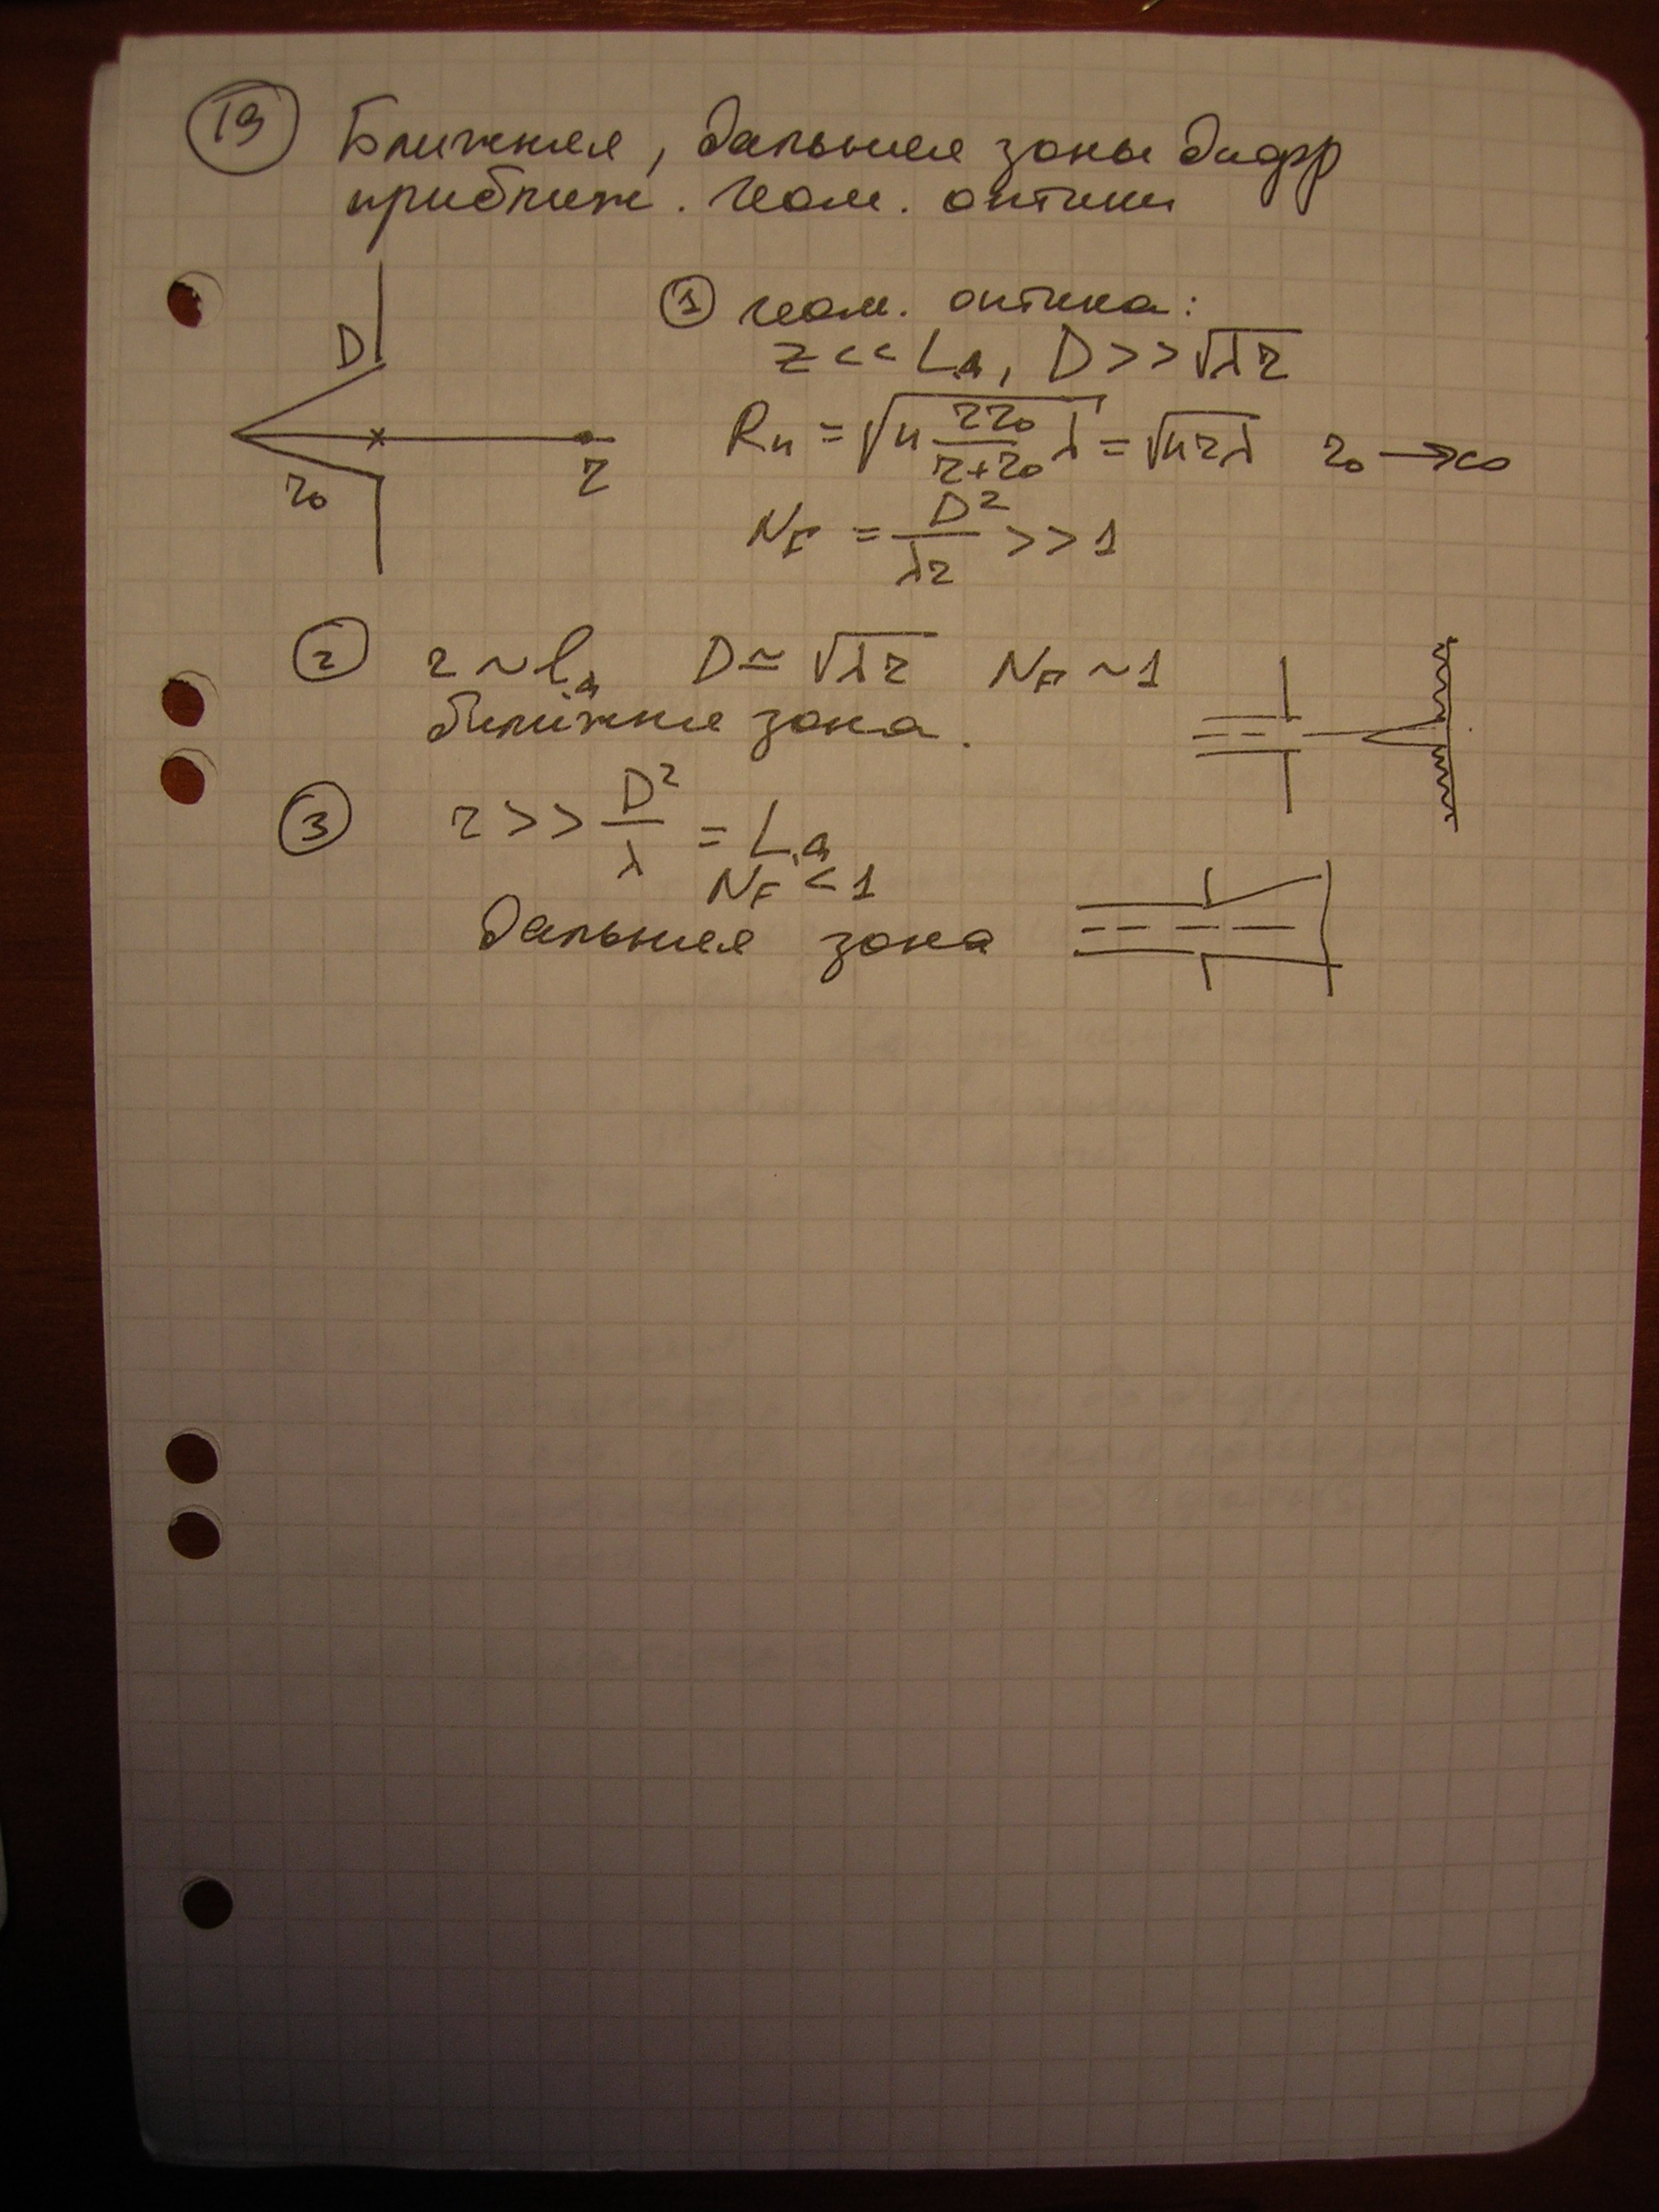 19 Ближняя, дальняя зоны дифр
приближ. геом. оптики
D
r₀
z
① геом. оптика:
z << L_д, D >> √λz
Rₙ = √(n zz₀/(z+z₀) λ) = √nzλ z₀ → ∞
N_F = D²/λz >> 1
② z ~ l_д D ≃ √λz N_F ~ 1
ближняя зона.
③ z >> D²/λ = L_д
N_F < 1
Дальняя зона